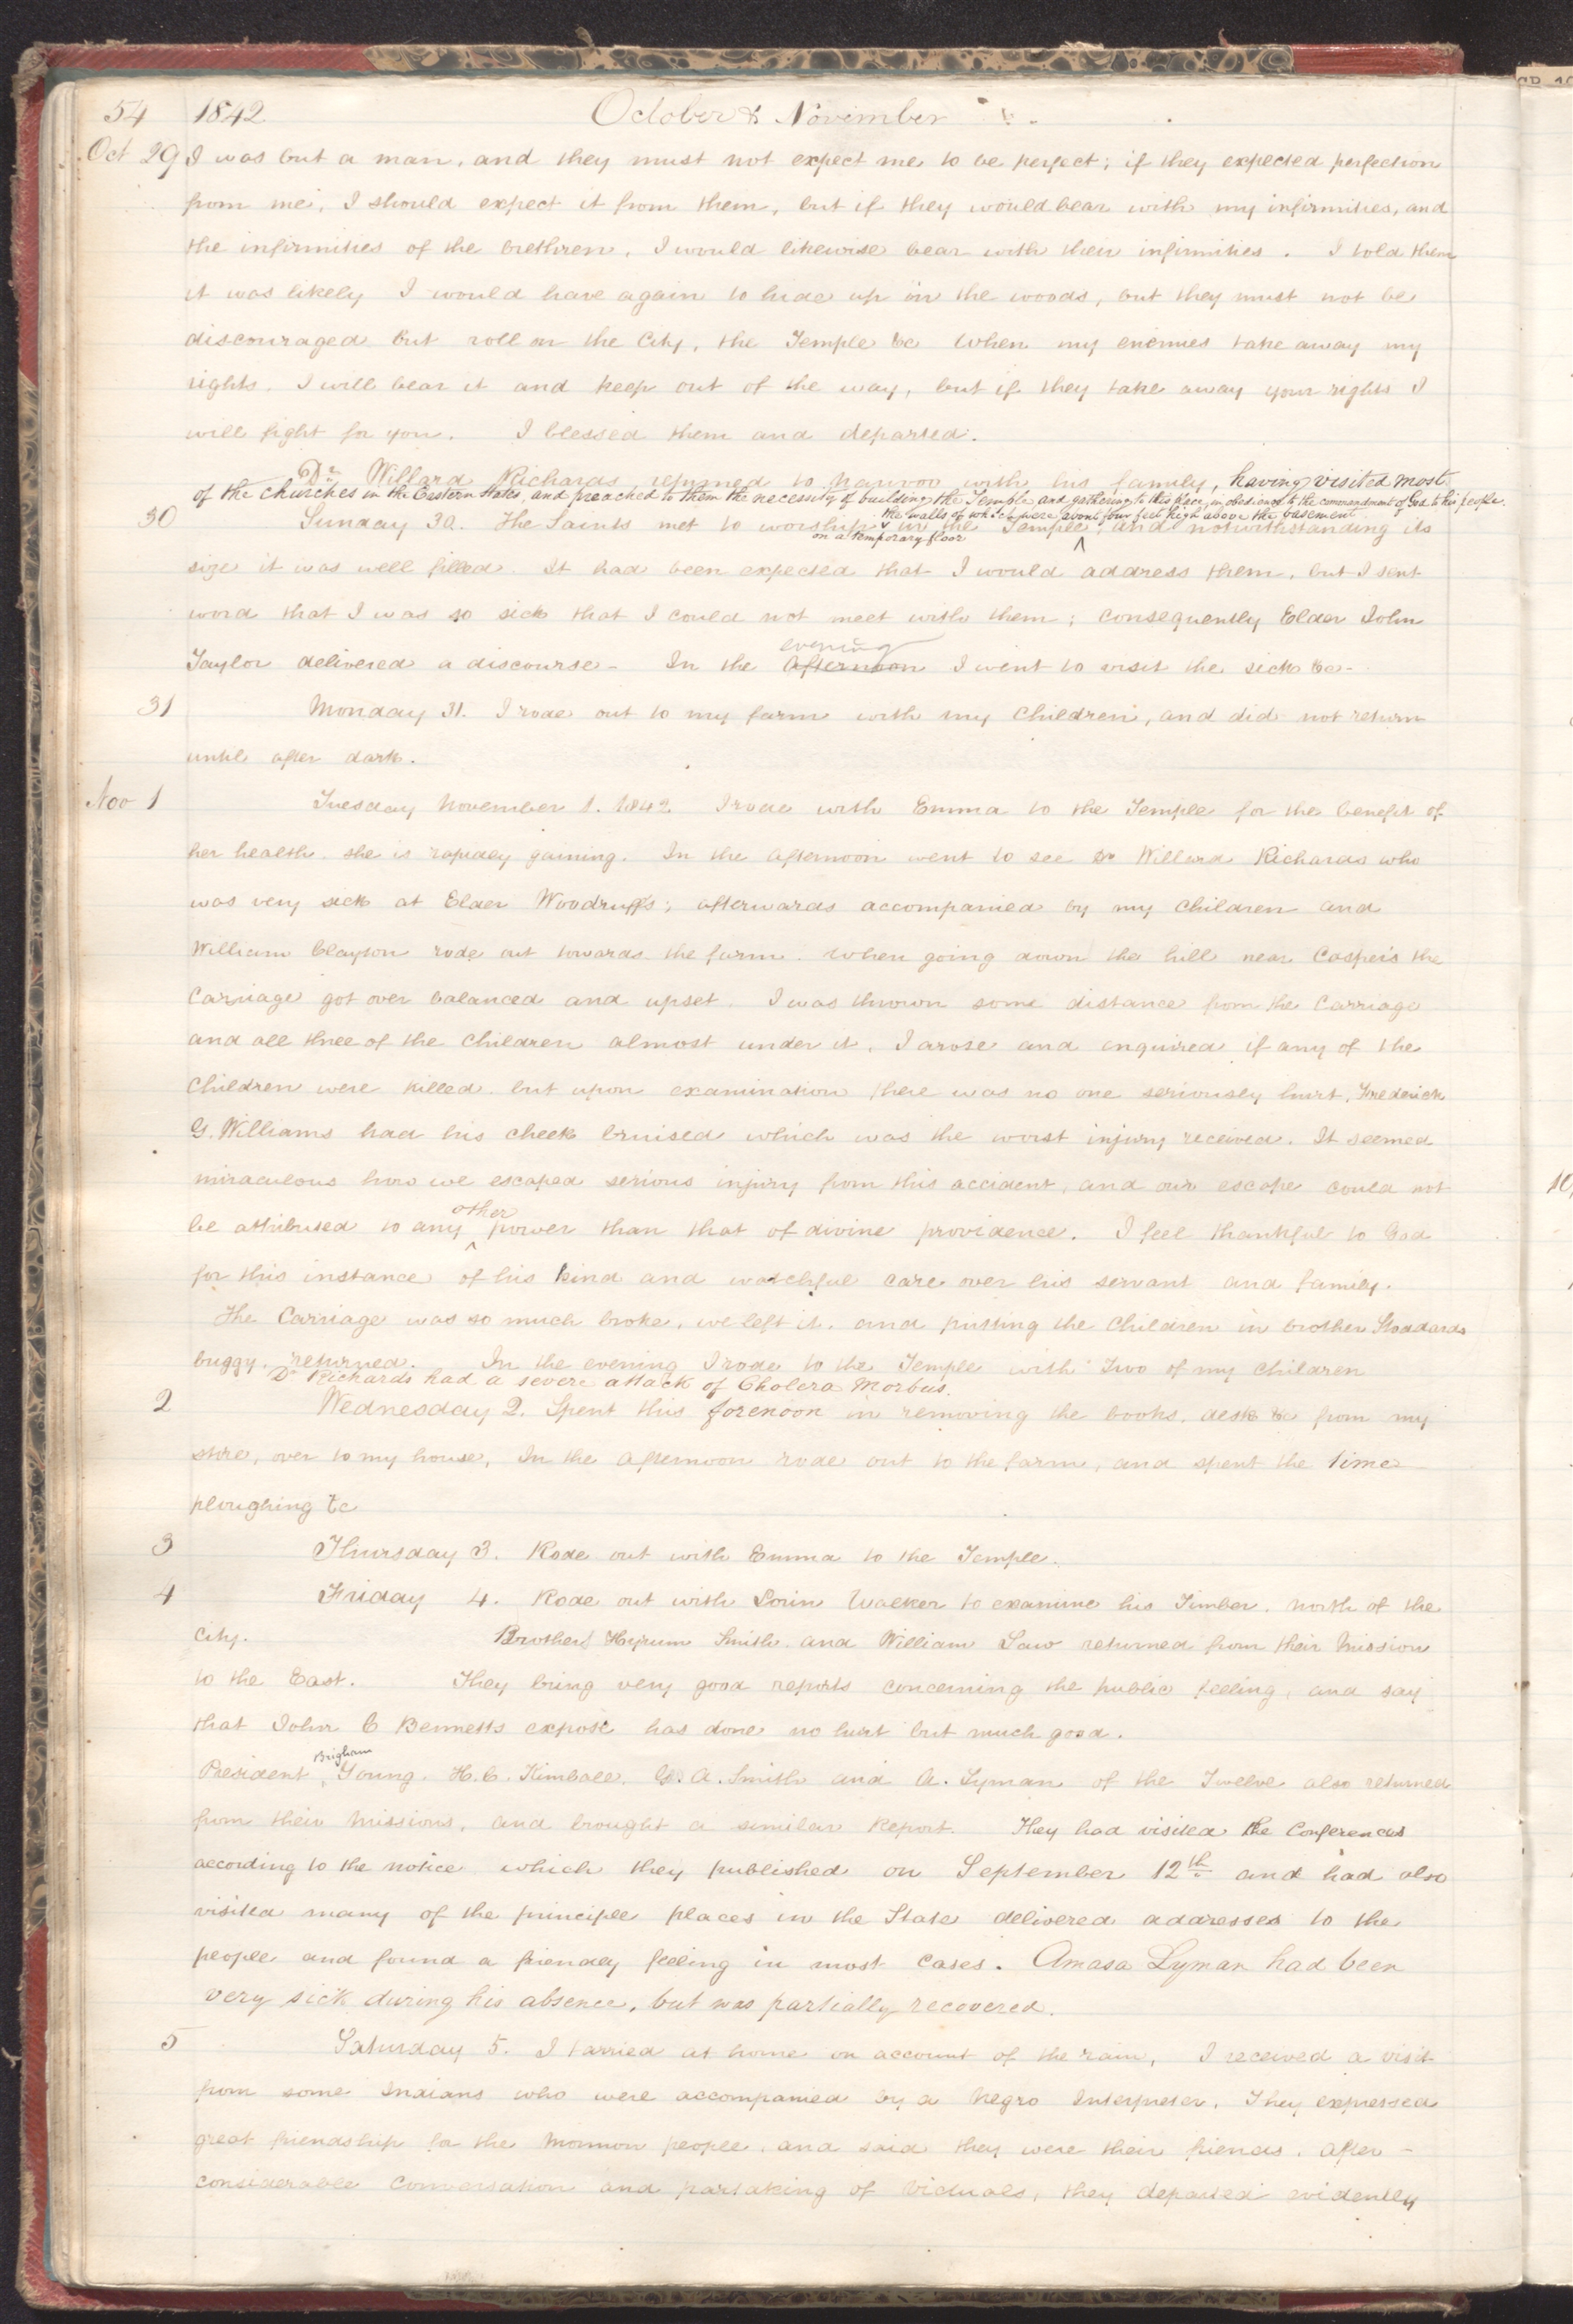 54 1842 October & November
Oct 29 I was but a man, and they must not expect me to be perfect; if they expected perfection
from me, I should expect it from them, but if they would bear with my infirmities, and
the infirmities of the brethren, I would likewise bear with their infirmities. I told them
it was likely I would have again to hide up in the woods, but they must not be
discouraged but roll on the City, the Temple &c When my enemies take away my
rights, I will bear it and keep out of the way, but if they take away your rights I
will fight for you. I blessed them and departed.
Dr Willard Richards, returned to Nauvoo with his family, having visited most
of the churches in the Eastern States, and preached to them the necessity of building the Temple and gathering to this place, in obedience to the commandment of God to his people.
the walls of which were about four feet high above the basement
30 Sunday 30. The Saints met to worship in the Temple, and notwithstanding its
on a temporary floor
size it was well filled. It had been expected that I would address them, but I sent
word that I was so sick that I could not meet with them; consequently Elder John
evening
Taylor delivered a discourse – In the afternoon I went to visit the sick &c –
31 Monday 31. I rode out to my farm with my children, and did not return
until after dark.
Nov 1 Tuesday November 1. 1842 I rode with Emma to the Temple for the benefit of
her health. she is rapidly gaining. In the afternoon went to see Dr Willard Richards who
was very sick at Elder Woodruff's; afterwards accompanied by my children and
William Clayton rode out towards the farm. When going down the hill near Casper's the
Carriage got over balanced and upset. I was thrown some distance from the Carriage
and all three of the children almost under it. I arose and enquired if any of the
Children were killed. but upon examination there was no one seriously hurt, Frederick
G. Williams had his cheek bruised which was the worst injury received. It seemed
miraculous how we escaped serious injury from this accident, and our escape could not
other
be attributed to any ^ power than that of divine providence. I feel thankful to God
for this instance of his kind and watchful care over his servant and family.
The Carriage was so much broke, we left it. and putting the Children in brother Stoddards
buggy. returned. In the evening I rode to the Temple with Two of my children
Dr Richards had a severe attack of Cholera Morbus.
2 Wednesday 2. Spent this forenoon in removing the books, desk &c from my
store, over to my house, In the afternoon rode out to the farm, and spent the time
ploughing &c
3 Thursday 3. Rode out with Emma to the Temple.
4 Friday 4. Rode out with Lorin Walker to examine his Timber. north of the
City. Brothers Hyrum Smith and William Law returned from their mission
to the East. They bring very good reports concerning the public feeling, and say
that John C Bennetts expose has done no hurt but much good.
Brigham
President ^ Young. H. C. Kimball. G. A. Smith and A. Lyman of the Twelve also returned
from their missions, and brought a similar Report. They had visited the Conferences
according to the notice which they published on September 12th and had also
visited many of the principle places in the State delivered addresses to the
people and found a friendly feeling in most cases. Amasa Lyman had been
very sick during his absence, but was partially recovered.
5 Saturday 5. I tarried at home on account of the rain, I received a visit
from some Indians who were accompanied by a Negro Interpreter. They expressed
great friendship for the Mormon people, and said they were their friends. After –
considerable conversation and partaking of victuals, they departed evidently